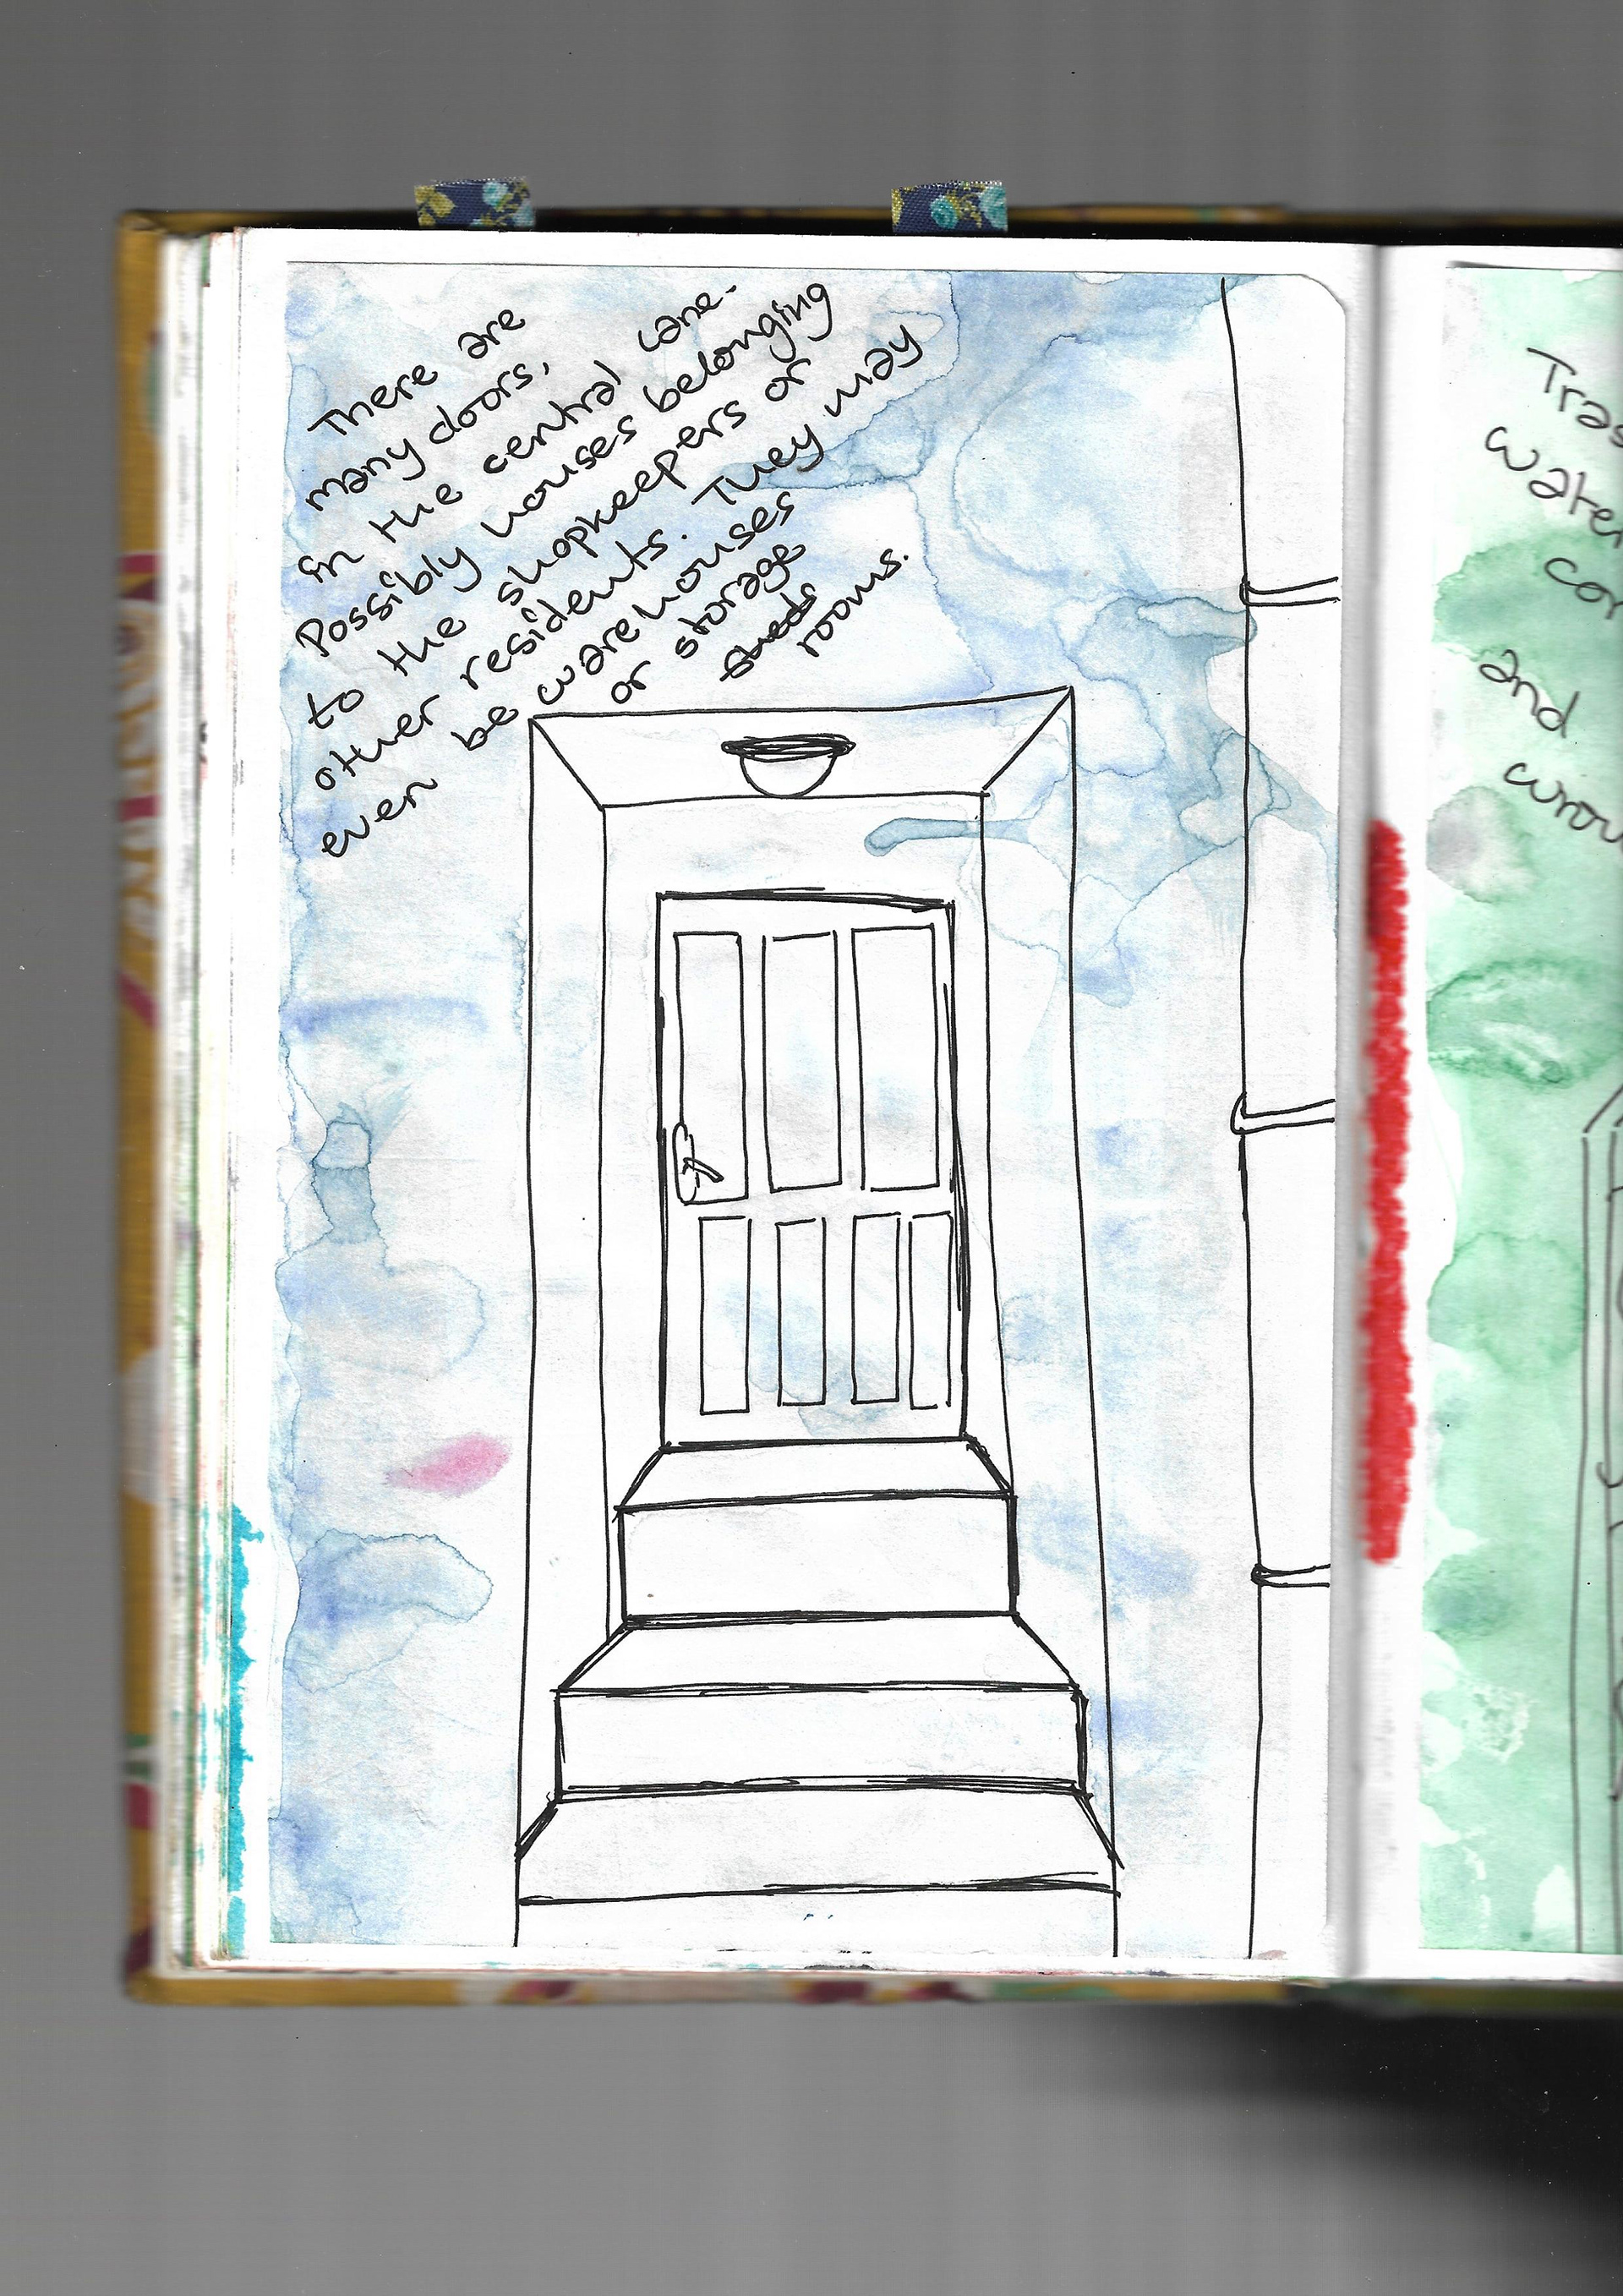 There are
many doors,
in the central lane.
Possibly houses belonging
to the shopkeepers or
other residents. They may
even be warehouses
or storage
sheds
rooms.
and